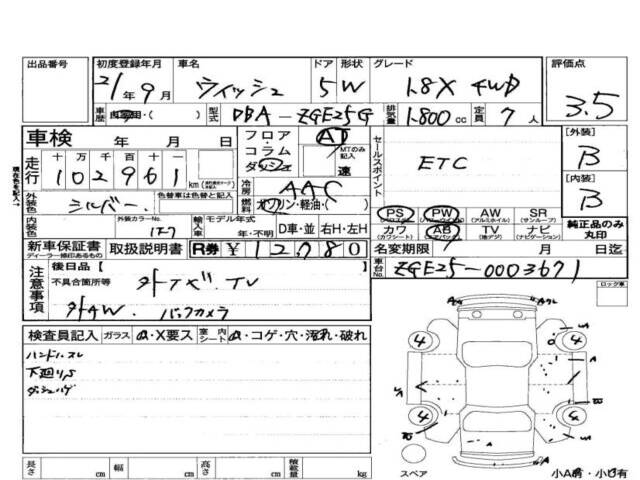 出品番号 初度登録年月 車名 ドア 形状 グレード 評価点
21年9月 ウィッシュ 5 W 1.8X 4WD 3.5
車歴 自家用・( ) 型式 DBA-ZGE25G 排気量 1800cc 定員 7人
車検 年 月 日 フロア・コラム・ダッシュ AT MTのみ記入 速
セールスポイント ETC
[外装] B
[内装] B
走行 十 万 千 百 十 一
102961 km
現在色を記入→
外装色 シルバー 色替車は色替と記入 冷房 AAC
燃料 ガソリン・軽油・( )
内装色 外装カラーNo. 1F7 輸入車 モデル年式 年・不明 D車・並 右H・左H
PS (パワステ) PW (パワーウィンドウ) AW (アルミホイル) SR (サンルーフ)
カワ (カワシート) AB (エアバック) TV (地デジ) ナビ (ナビゲーション)
純正品のみ丸印
新車保証書 ディーラー捺印あるもの 取扱説明書 R券 ¥12,780
名変期限 月 日迄
車台No. ZGE25-0003671
注意事項 後日品( )
不具合箇所等 TV
外AW. バックカメラ
ロック車
検査員記入 ガラス A・X要ス 室内シート A・コゲ・穴・汚れ・破れ
ハンドルスレ
下廻りS
4 4 4 4
スペア
小A有・小B有
長さ cm 幅 cm 高さ cm 積載量 kg